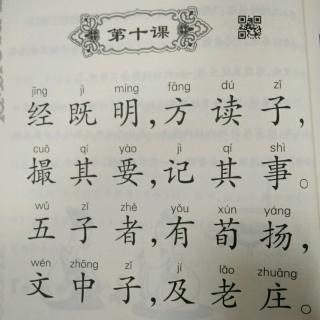 第十课
jīng jì míng fāng dú zǐ
经既明,方读子,
cuō qí yào jì qí shì
撮其要,记其事。
wǔ zǐ zhě yǒu xún yáng
五子者,有荀扬,
wén zhōng zǐ jí lǎo zhuāng
文中子,及老庄。